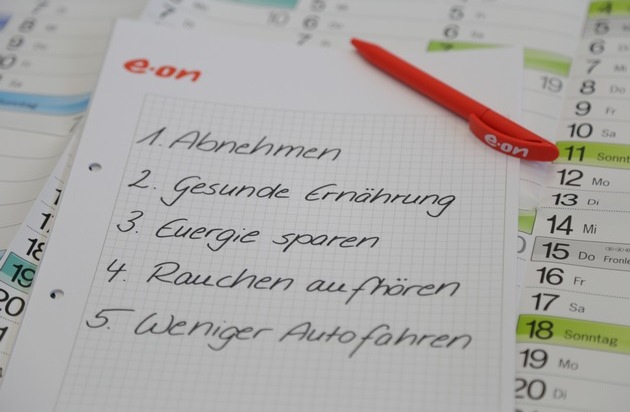 e·on
1. Abnehmen
2. Gesunde Ernährung
3. Energie sparen
4. Rauchen aufhören
5. Weniger Autofahren
e·on
8
9
10
19
5
6
7 Mi
8 Do
9 Fr
10 Sa
11 Sonnt
12 Mo
13 Di
14 Mi
15 Do Fronle
16 Fr
17 Sa
18 Sonntag
19 Mo
20 Di
18
19
20